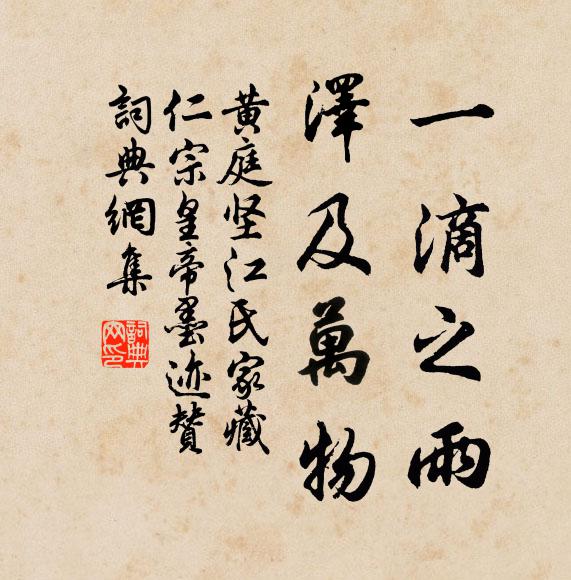 一滴之雨
澤及萬物
黃庭坚江氏家藏
仁宗皇帝墨迹贊
詞典網集
詞典
网印